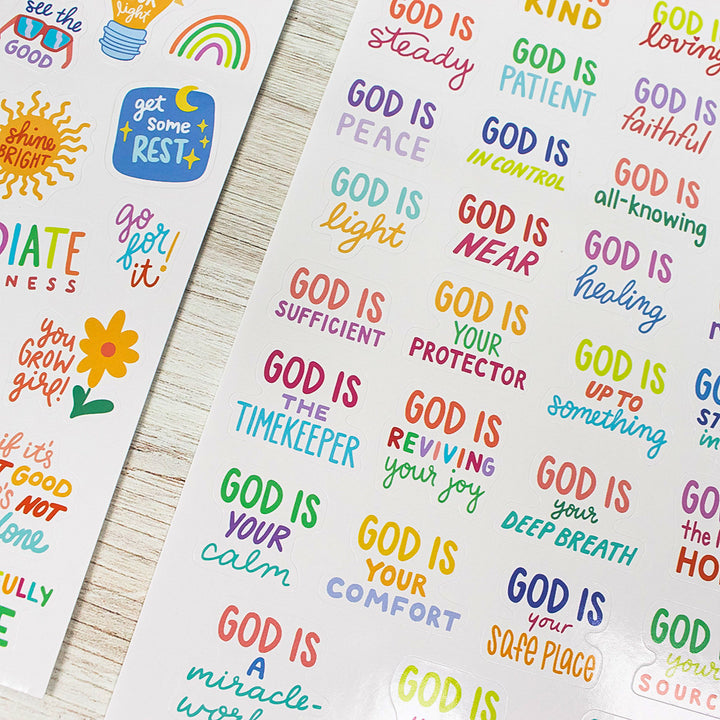 see the
GOOD
light
shine
BRIGHT
get
some
REST
go
for
it!
NESS
you
GROW
girl!
if it's
GOOD
NOT
GOD IS
steady
KIND
GOD IS
loving
GOD IS
PEACE
GOD IS
PATIENT
GOD IS
faithful
GOD IS
light
GOD IS
IN CONTROL
GOD IS
all-knowing
GOD IS
SUFFICIENT
GOD IS
NEAR
GOD IS
healing
GOD IS
THE
TIMEKEEPER
GOD IS
YOUR
PROTECTOR
GOD IS
UP TO
something
GOD IS
YOUR
calm
GOD IS
REVIVING
your joy
GOD IS
your
DEEP BREATH
GOD IS
YOUR
COMFORT
GOD IS
your
SAFE PLACE
GOD IS
A
miracle-
GOD IS
GOD
your
SOURC
the